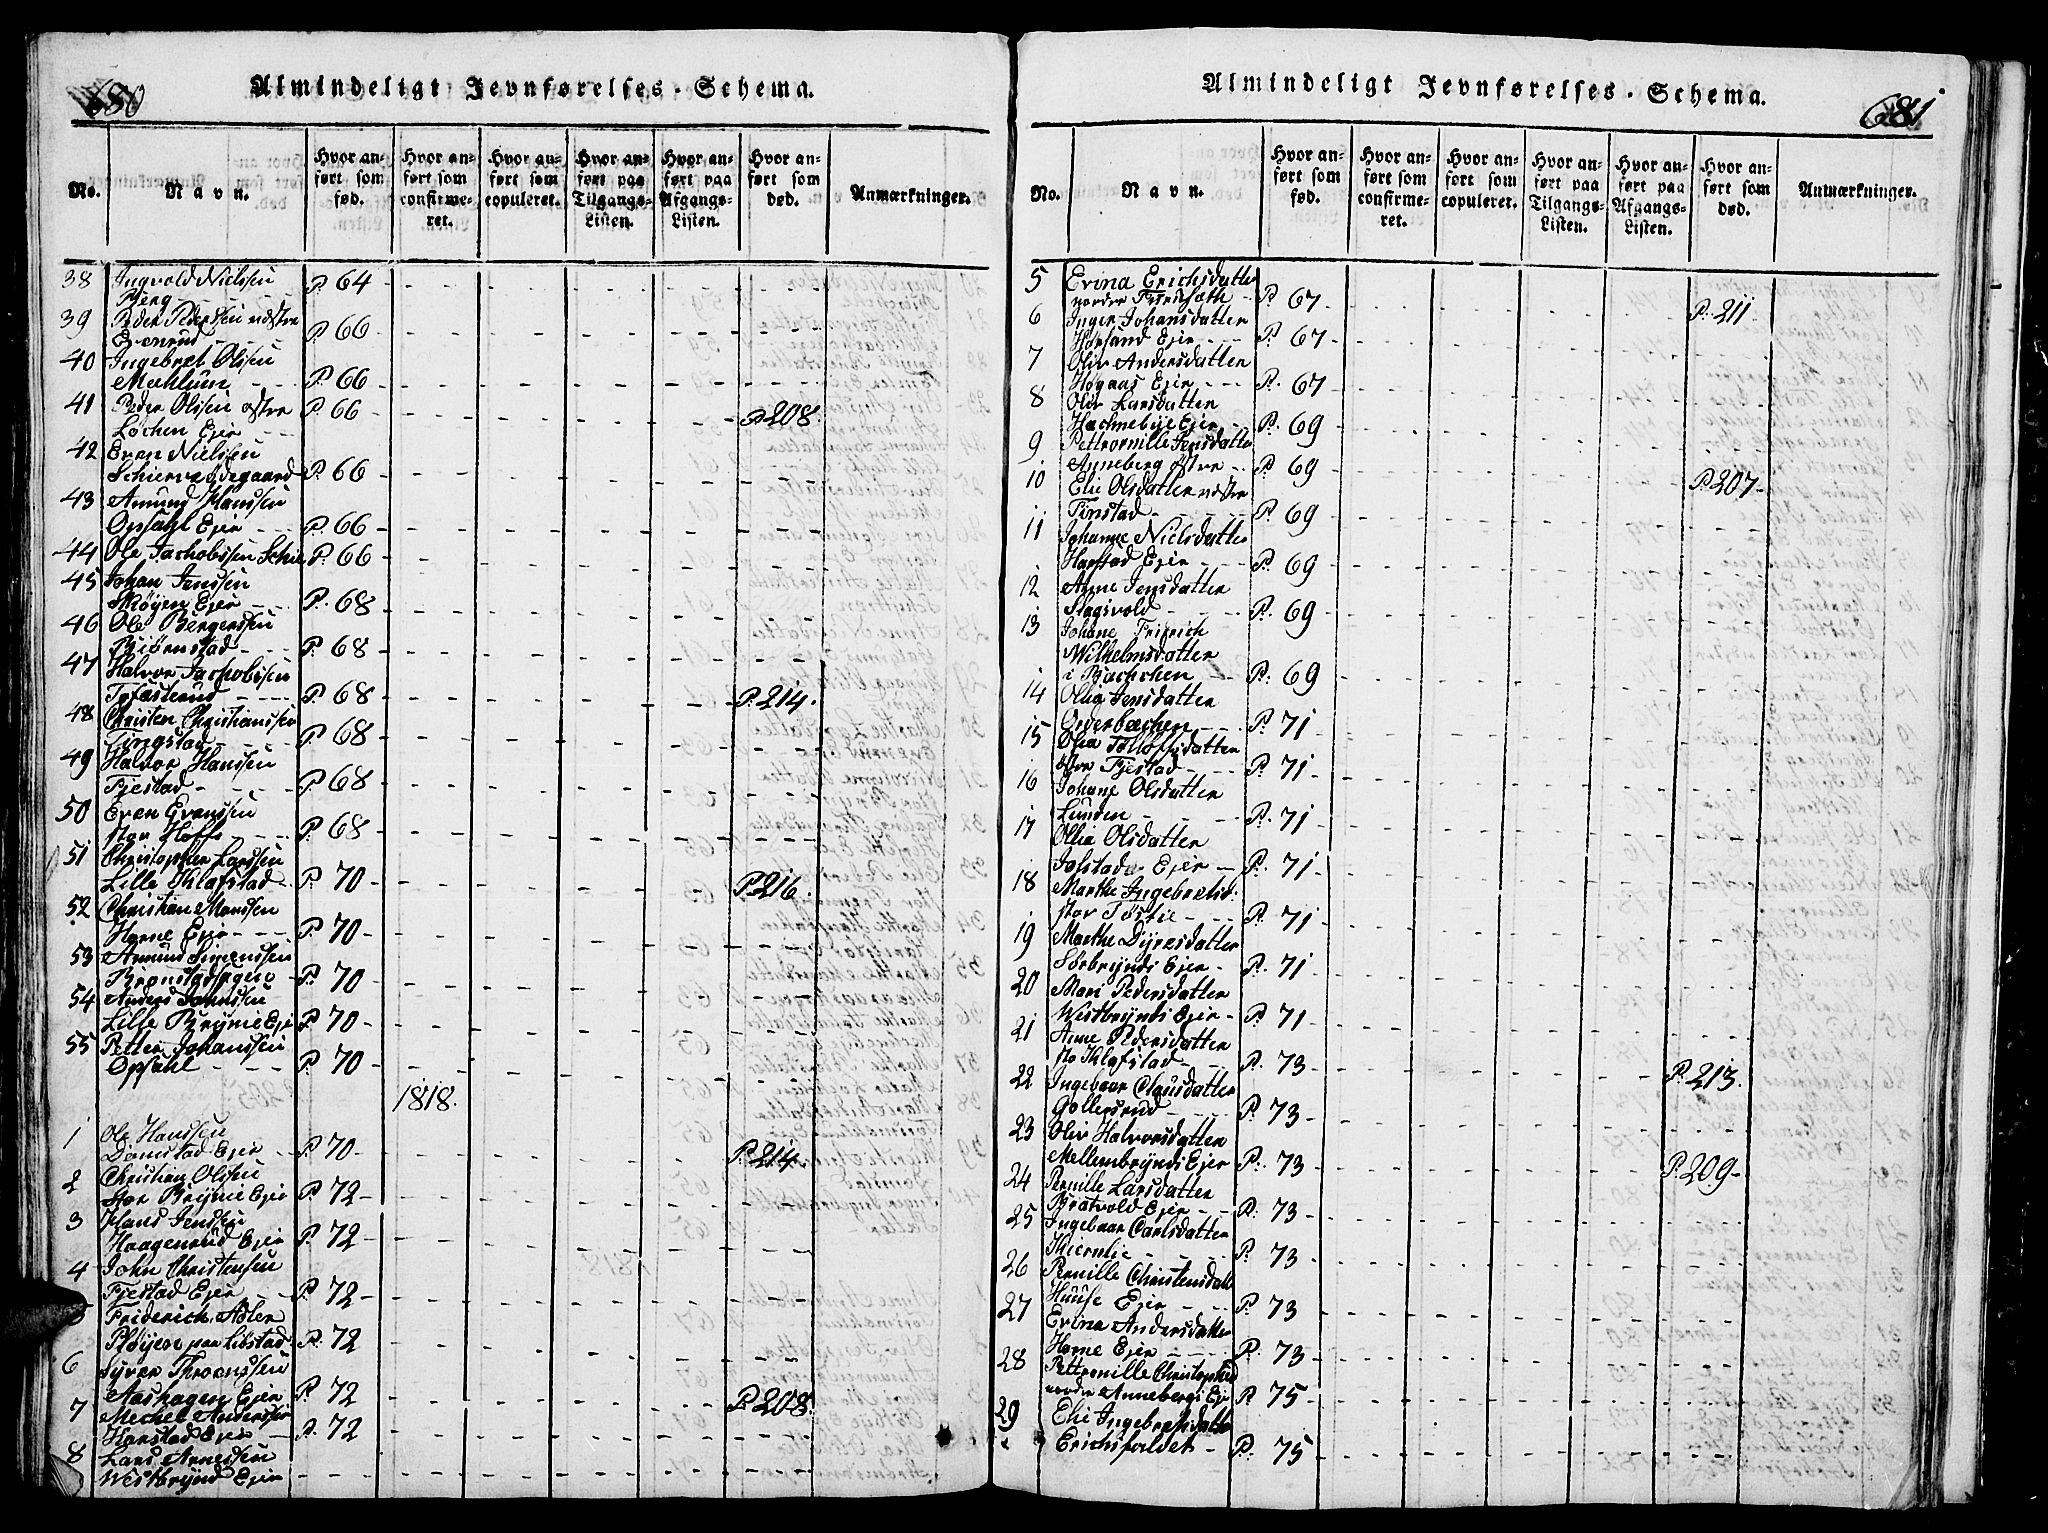 680
Almindeligt Jevnførelses-Schema.
No.
Navn.
Hvor anført som fød.
Hvor anført som confirmeret.
Hvor anført som copuleret.
Hvor anført paa Tilgangs-Listen.
Hvor anført paa Afgangs-Listen.
Hvor anført som død.
Anmærkninger.
38 Ingvold Nielssen
Berg P. 64
39 Peder Pedersen vestre
Evenrud P. 66
40 Ingebret Olsen
Mæhlum P. 66
41 Peder Olssen østre P. 66 P. 208.
Løchen Ejer
42 Even Nielsen
Schiervødegaard P. 66
43 Amund Hanssen
Opsahl Ejer P. 66
44 Ole Jachobssen Schie P. 66
45 Johan Jenssen
Skøyen Ejer P. 68
46 Ole Bergerssen
Biørnstad P. 68
47 Halvor Jachobssen
Tofastrud P. 68 P. 214.
48 Christen Christianssen
Tingstad P. 68
49 Halvor Hanssen
Fjestad P. 68
50 Even Evenssen
stor Hoff P. 68
51 Christopher Larssen
Lille Klafstad P. 70 P. 216.
52 Christian Monssen
Horne Ejer P. 70
53 Amund Simenssen
Bronstadhagen P. 70
54 Anders Johnssen
Lille Brynie Eje P. 70
55 Petter Johanssen
Opsahl P. 70
1818.
1 Ole Hanssen
Domstad Ejer P. 70 P. 214.
2 Christian Olssen
stor Brynie Ejer P. 72
3 Hans Jenssen
Haagenrud Ejer P. 72
4 John Christensen
Fjestad Ejer P. 72
5 Friderich Adler
Pløyen paa Libstad P. 72
6 Syver Throenssen
Aashagen Ejer P. 72 P. 208.
7 Mechel Anderssen
Harstad Ejer P. 72
8 Lars Arnessen
Westbrynd Ejer
681
Almindeligt Jevnførelses-Schema.
No.
Navn.
Hvor anført som fød.
Hvor anført som confirmeret.
Hvor anført som copuleret.
Hvor anført paa Tilgangs-Listen.
Hvor anført paa Afgangs-Listen.
Hvor anført som død.
Anmærkninger.
5 Evina Erichsdatter
nordre P. 67 P. 211
6 Inger Johansdatter
Horsand Ejer P. 67
7 Oliv Andersdatter
Høgaas Ejer P. 67
8 Oliv Larsdatter
Hachnebye Ejer P. 69
9 Pettronille Jensdatter
Anneberg østre P. 69
10 Elie Olsdatter vestre P. 207
Finstad P. 69
11 Johanne Nielsdatter
Harstad Ejer P. 69
12 Anne Jensdatter
Slagsvold P. 69
13 Johane Fridrich
Wilhelmsdatter
i Bachchen P. 69
14 Olea Jensdatter
Oderbæchen P. 71
15 Olea Tolløfsdatter
østre Fjestad P. 71
16 Johane Olsdatter
Lunden P. 71
17 Olia Olsdatter
Jolstad Ejer P. 71
18 Marthe Ingebretsd:
stor Tøstie P. 71
19 Marthe Dyresdatter
Sørbryndi Ejer P. 71
20 Mari Pedersdatter
Westbryndi Ejer P. 71
21 Anne Pedersdatter
sto Klafstad P. 73 P. 213.
22 Ingebaar Clausdatter
Gollersrud P. 73
23 Oliv Halvorsdatter
Mellembryndi Ejer P. 73 P. 209
24 Pernille Larsdatter
Bratvold Ejer P. 73
25 Ingebaar Carlsdatter
Kiernlie P. 73
26 Pernille Christensdatt
Huuse Ejer P. 73
27 Evina Andersdatter
Horne Ejer P. 73
28 Pettronille Christophsd
nordre Annebergs Eje P. 75
29 Elie Ingebretsdatter
Erichsfaldet P. 75